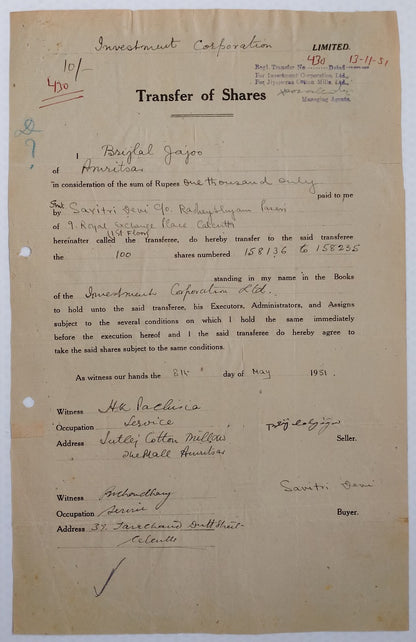 Investment Corporation LIMITED.
10/-
430
Regd. Transfer No 430 Dated 13-11-51
For Investment Corporation Ltd.,
For Jiyajeerao Cotton Mills, Ltd.,
Managing Agents.
Transfer of Shares
I Brijlal Jajoo
of Amritsar
in consideration of the sum of Rupees One thousand only
paid to me
by Smt Savitri Devi c/o. Radheyshyam
of 9, Royal Exchange Place Calcutta
1st Floor
hereinafter called the transferee, do hereby transfer to the said transferee
the 100 shares numbered 158136 to 158235
standing in my name in the Books
of the Investment Corporation Ltd.
to hold unto the said transferee, his Executors, Administrators, and Assigns
subject to the several conditions on which I hold the same immediately
before the execution hereof and I the said transferee do hereby agree to
take the said shares subject to the same conditions.
As witness our hands the 8th day of May 1951.
Witness
Occupation Service
Address Sutlej Cotton Mills Ltd Seller.
The Mall Amritsar
Witness Choudhary Savitri Devi
Occupation Service Buyer.
Address 37, Tarachand Dutt Street
Calcutta